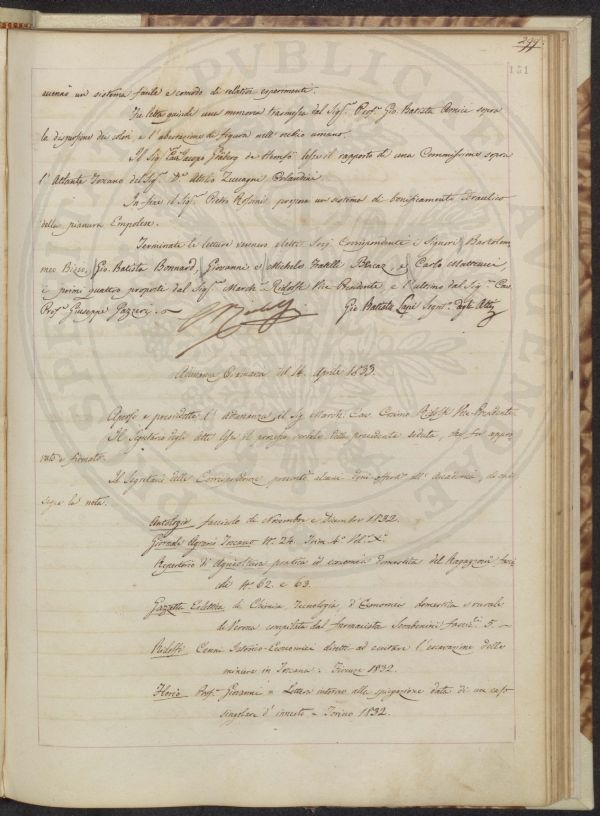 299.
151
un sistema facile e comodo di relativi esperimenti.
Fu letta quindi una memoria trasmessa dal Sigr. Profr. Gio Batista Amici sopra
la dispersione dei colori e l'aberrazione di figura nell'occhio umano.
Il Sig. Cav. Jacopo Gråberg de Hemsö lesse il rapporto di una Commissione sopra
l'Atlante Toscano del Sigr. Dr. Attilio Zuccagni Orlandini
In fine il Sigr. Pietro Rossini propose un sistema di bonificamento idraulico
della pianura Empolese.
Terminate le letture vennero eletti Socj Corrispondenti i Signori Bartolom
meo Bizio, Gio. Batista Bonnard, Giovanni e Michele Fratelli e Carlo Matteucci
i primi quattro proposti dal Sigr. March. Ridolfi Vice-Presidente, e l'ultimo dal Sigr. Cav.
Profr. Giuseppe Gazzeri. —
Ridolfi
Gio Battista Segret. degli Atti
Adunanza Ordinaria del 14. Aprile 1833.
Aperse e presedette l'Adunanza il Sig. March. Cav. Cosimo Ridolfi Vice-Presidente
Il Segretario degli Atti lesse il processo verbale della precedente seduta, che fu appro
vato e firmato.
Il Segretario delle Corrispondenze presentò alcuni doni offerti all'Accademia, di che
segue la nota.
Antologia fascicolo di Novembre e Dicembre 1832.
Giornale Agrario Toscano No. 24. Trim. 4o. Vol. X.
Repertorio di Agricoltura pratica ed economia domestica del Ragazzoni fasci
coli No. 62. e 63.
Gazzetta Eclettica di Chimica, Tecnologia, d'Economia domestica e rurale
di Verona compilata dal farmacista Sembenini fascic. 5. —
Ridolfi Cenni Istorico-Economici diretti ad eccitare l'escavazione delle
miniere in Toscana. Firenze 1832.
Florio Profr. Giovanni — Lettera intorno alla spiegazione data di un caso
singolare d'innesto — Torino 1832.